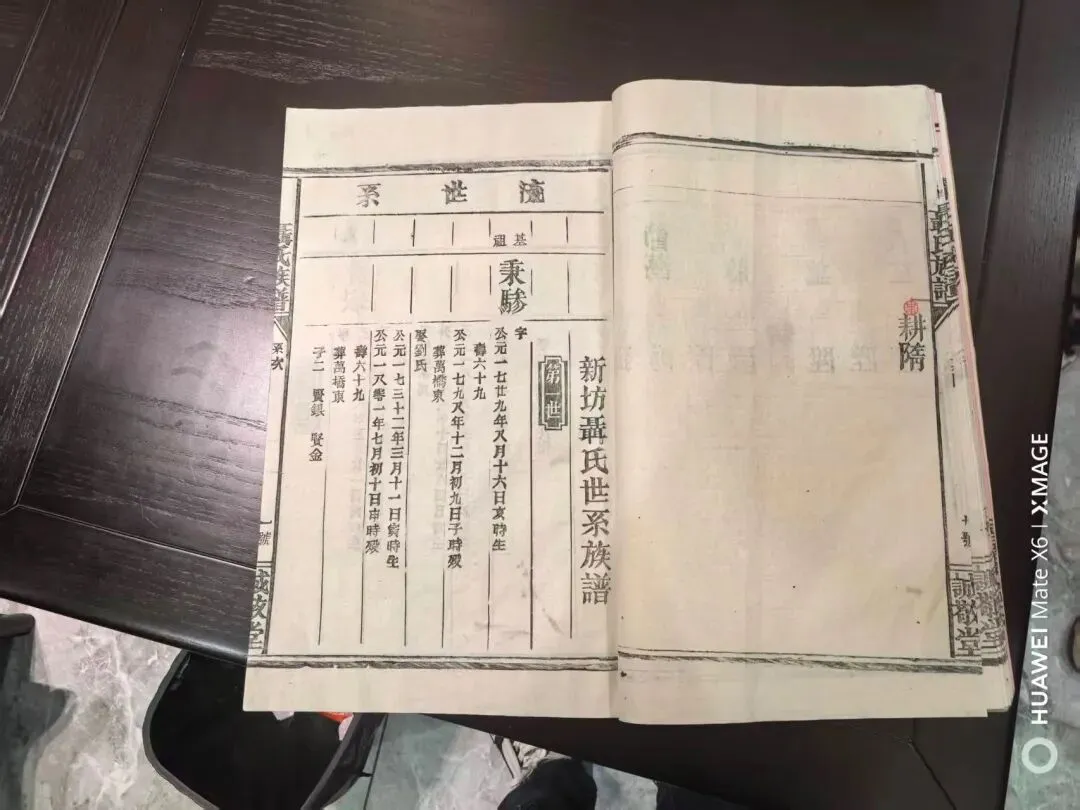 耕隋
聶氏族譜
誠敬堂
流世系
基祖
秉驂
新坊聶氏世系族譜
第一世
字
公元一七廿九年八月十六日亥時生
壽六十九
公元一七九八年十二月初九日子時殁
葬萬橋東
娶劉氏
公元一七三十二年三月十一日寅時生
公元一八零一年七月初十日申時殁
壽六十九
葬萬橋東
子二 賢銀 賢金
聶氏族譜
系次
誠敬堂
HUAWEI Mate X6 | XMAGE